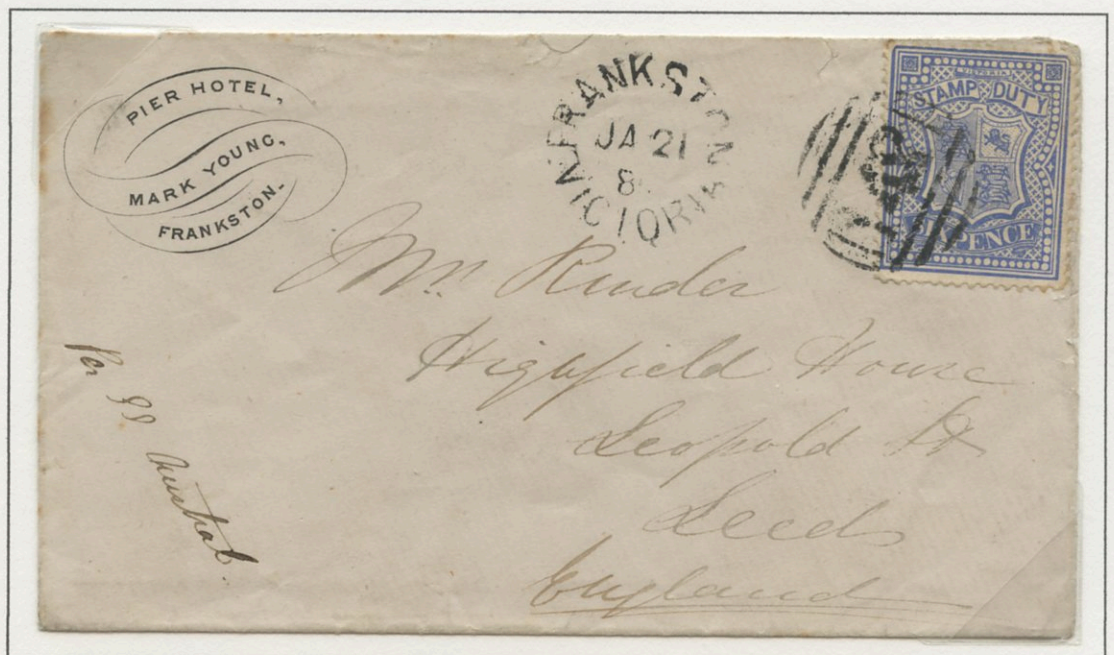 PIER HOTEL,
MARK YOUNG,
FRANKSTON.
FRANKSTON
JA 21
8
VICTORIA
VICTORIA
STAMP DUTY
PENCE
Highfield House
Leopold St
Leeds
England
Per SS Austral.